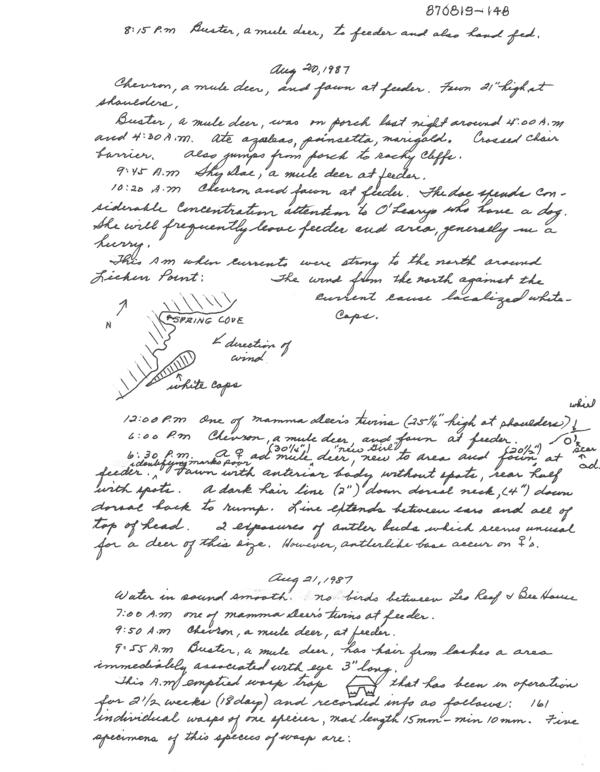 870819-148
8:15 P.M Buster, a mule deer, to feeder and also hand fed.
Aug 20, 1987
Chevron, a mule deer, and fawn at feeder. Fawn 21" high at
shoulders.
Buster, a mule deer, was on porch last night around 4:00 A.M
and 4:30 A.M. Ate azaleas, poinsetta, marigold. Crossed chair
barrier. Also jumps from porch to rocky cliffs.
9:45 A.M Shy Doe, a mule deer at feeder.
10:20 A.M Chevron and fawn at feeder. The doe spends con-
siderable concentration attention to O'Learys who have a dog.
She will frequently leave feeder and area, generally in a
hurry.
This AM when currents were strong to the north around
Lichen Point: The wind from the north against the
current cause localized white-
caps.
N
SPRING COVE
direction of
wind
white caps
12:00 P.M One of mamma Deer's twins (25 1/4" high at shoulders)
6:00 P.M Chevron, a mule deer, and fawn at feeder.
(30 1/4") "new Girl" (20 1/2")
6:30 P.M. A ♀ ad mule deer, new to area and fawn at
identifying marks poor
feeder. Fawn with anterior body without spots, rear half
with spots. A dark hair line (2") down dorsal neck, (4") down
dorsal back to rump. Line extends between ears and all of
top of head. 2 exposures of antler buds which seems unusual
for a deer of this size. However, antlerlike base occur on ♀'s.
ad.
Aug 21, 1987
Water in sound smooth. no birds between Leo Reef & Bee House
7:00 A.M one of mamma Deer's twins at feeder.
9:50 A.M Chevron, a mule deer, at feeder.
9:55 A.M Buster, a mule deer, has hair from lashes a area
immediately associated with eye 3" long.
This A.M emptied wasp trap that has been in operation
for 2 1/2 weeks (18 days) and recorded info as follows: 161
individual wasps of one species, max length 15mm - min 10mm. Five
specimens of this species of wasp are: